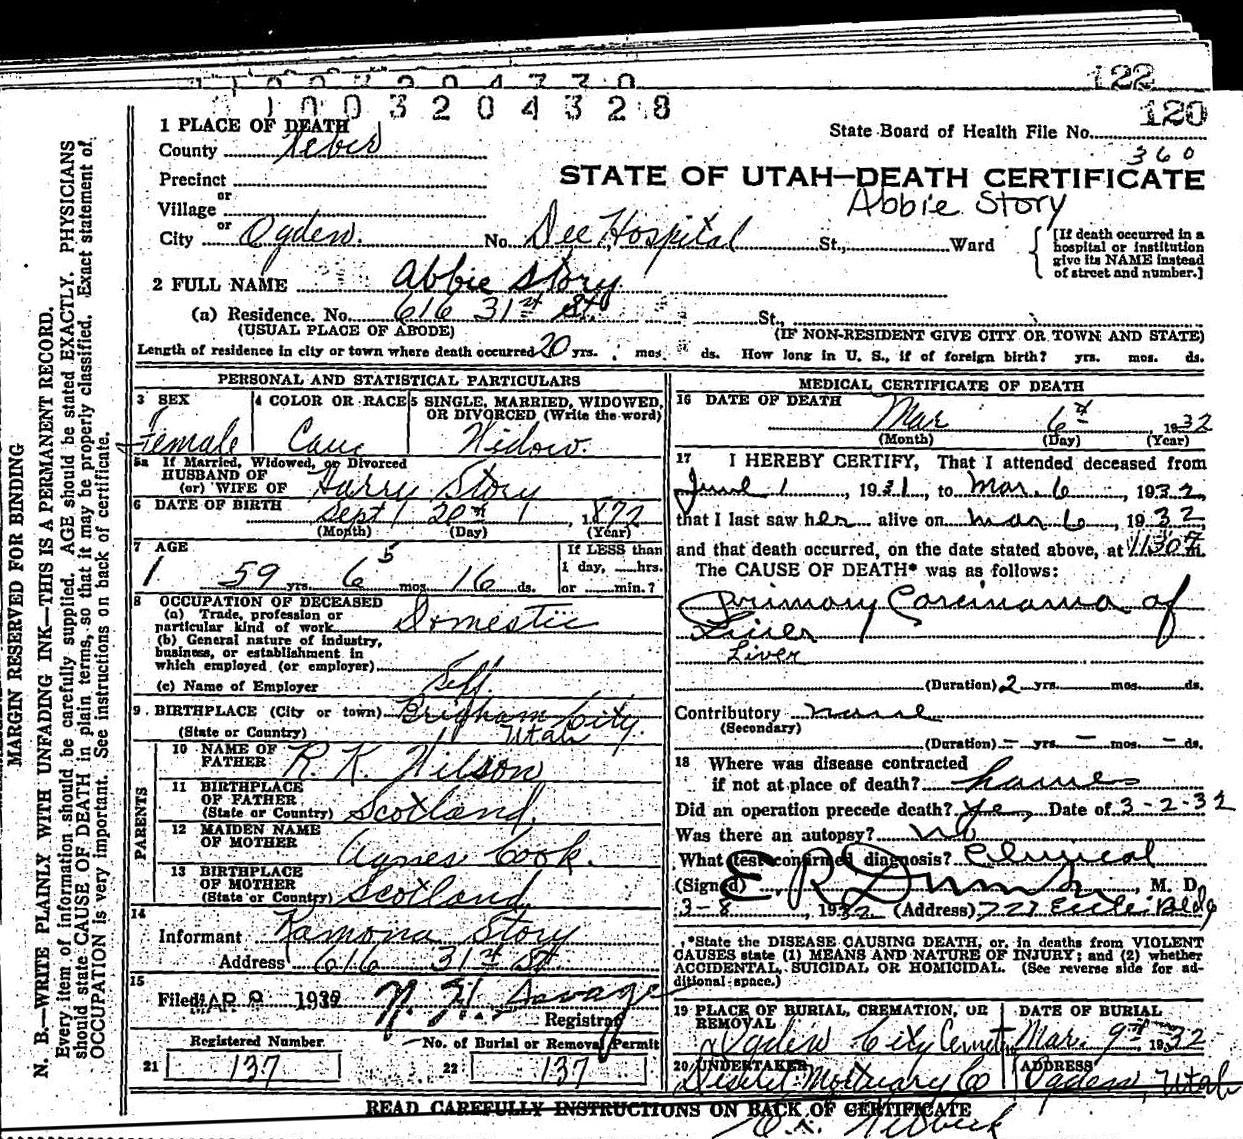 122
1003204328
120
1 PLACE OF DEATH
State Board of Health File No.
County Weber
360
STATE OF UTAH—DEATH CERTIFICATE
Precinct
or
Village
Abbie Story
or
City Ogden. No. Dee Hospital St., Ward
[If death occurred in a
hospital or institution
give its NAME instead
of street and number.]
2 FULL NAME Abbie Story
(a) Residence. No. 616 31st St. St.,
(USUAL PLACE OF ABODE) (IF NON-RESIDENT GIVE CITY OR TOWN AND STATE)
Length of residence in city or town where death occurred 20 yrs. mos. ds. How long in U. S., if of foreign birth? yrs. mos. ds.
PERSONAL AND STATISTICAL PARTICULARS
3 SEX
Female
4 COLOR OR RACE
Cauc
5 SINGLE, MARRIED, WIDOWED,
OR DIVORCED (Write the word)
Widow.
5a If Married, Widowed, or Divorced
HUSBAND OF
(or) WIFE OF Harry Story
6 DATE OF BIRTH
Sept 20th 1872
(Month) (Day) (Year)
7 AGE
59 yrs. 6 5 mos. 16 ds.
If LESS than
1 day, hrs.
or min.?
8 OCCUPATION OF DECEASED
(a) Trade, profession or
particular kind of work Domestic
(b) General nature of industry,
business, or establishment in
which employed (or employer)
(c) Name of Employer Self
9. BIRTHPLACE (City or town) Brigham City.
(State or Country) Utah
PARENTS
10 NAME OF
FATHER R. K. Wilson
11 BIRTHPLACE
OF FATHER
(State or Country) Scotland.
12 MAIDEN NAME
OF MOTHER Agnes Cook.
13 BIRTHPLACE
OF MOTHER
(State or Country) Scotland
14
Informant Ramona Story
Address 616 31st St
15
Filed MAR 8 1932
Registrar
Registered Number
21 137
No. of Burial or Removal Permit
22 137
MEDICAL CERTIFICATE OF DEATH
16 DATE OF DEATH
Mar 6th, 1932
(Month) (Day) (Year)
17 I HEREBY CERTIFY, That I attended deceased from
June 1, 1931, to Mar. 6, 1932,
that I last saw her alive on Mar 6, 1932,
and that death occurred, on the date stated above, at 1130
The CAUSE OF DEATH* was as follows:
Primary Carcinoma of
Liver
Liver
(Duration) 2 yrs. mos. ds.
Contributory none
(Secondary)
(Duration) — yrs. — mos. — ds.
18 Where was disease contracted
if not at place of death?
Did an operation precede death? yes Date of 3-2-32
Was there an autopsy? no
What test confirmed diagnosis? Clinical
(Signed) E R Dumke, M. D.
3-8, 1932 (Address) 727 Eccles Bldg
*State the DISEASE CAUSING DEATH, or, in deaths from VIOLENT
CAUSES state (1) MEANS AND NATURE OF INJURY; and (2) whether
ACCIDENTAL, SUICIDAL OR HOMICIDAL. (See reverse side for ad-
ditional space.)
19 PLACE OF BURIAL, CREMATION, OR
REMOVAL
Ogden City Cemet
DATE OF BURIAL
Mar. 9th, 1932
20 UNDERTAKER
Deseret Mortuary Co
ADDRESS
Ogden, Utah
READ CAREFULLY INSTRUCTIONS ON BACK OF CERTIFICATE
MARGIN RESERVED FOR BINDING
N. B.—WRITE PLAINLY WITH UNFADING INK—THIS IS A PERMANENT RECORD.
Every item of information should be carefully supplied. AGE should be stated EXACTLY. PHYSICIANS
should state CAUSE OF DEATH in plain terms, so that it may be properly classified. Exact statement of
OCCUPATION is very important. See instructions on back of certificate.